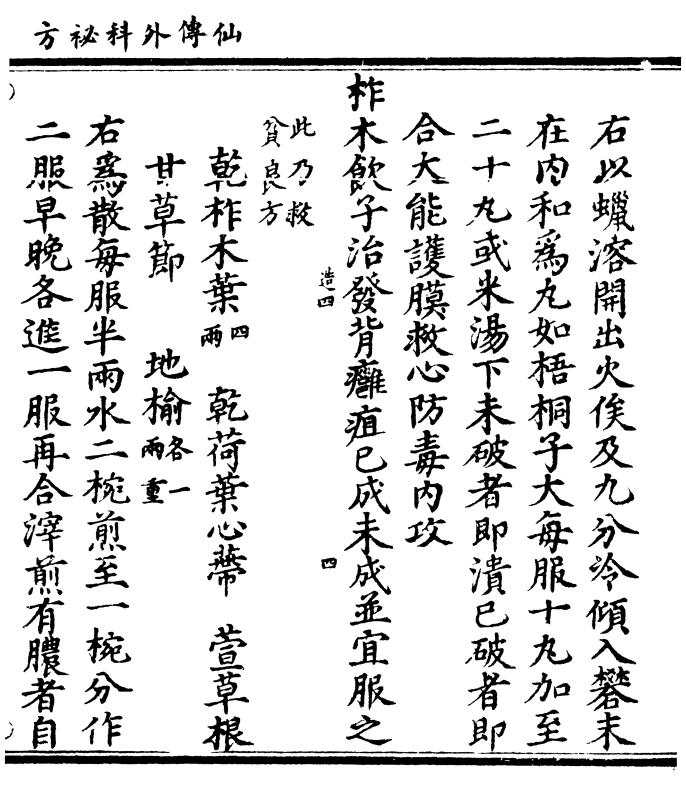 仙傳外科祕方
右以蠟溶開出火俟及九分冷傾入礬末
在內和爲丸如梧桐子大每服十丸加至
二十丸或米湯下未破者即潰已破者即
合大能護膜救心防毒內攻
柞木飲子治發背癰疽已成未成並宜服之
此乃救
貧良方
造四
四
乾柞木葉四兩 乾荷葉心蒂 萱草根
甘草節 地榆各一兩重
右爲散每服半兩水二椀煎至一椀分作
二服早晚各進一服再合滓煎有膿者自